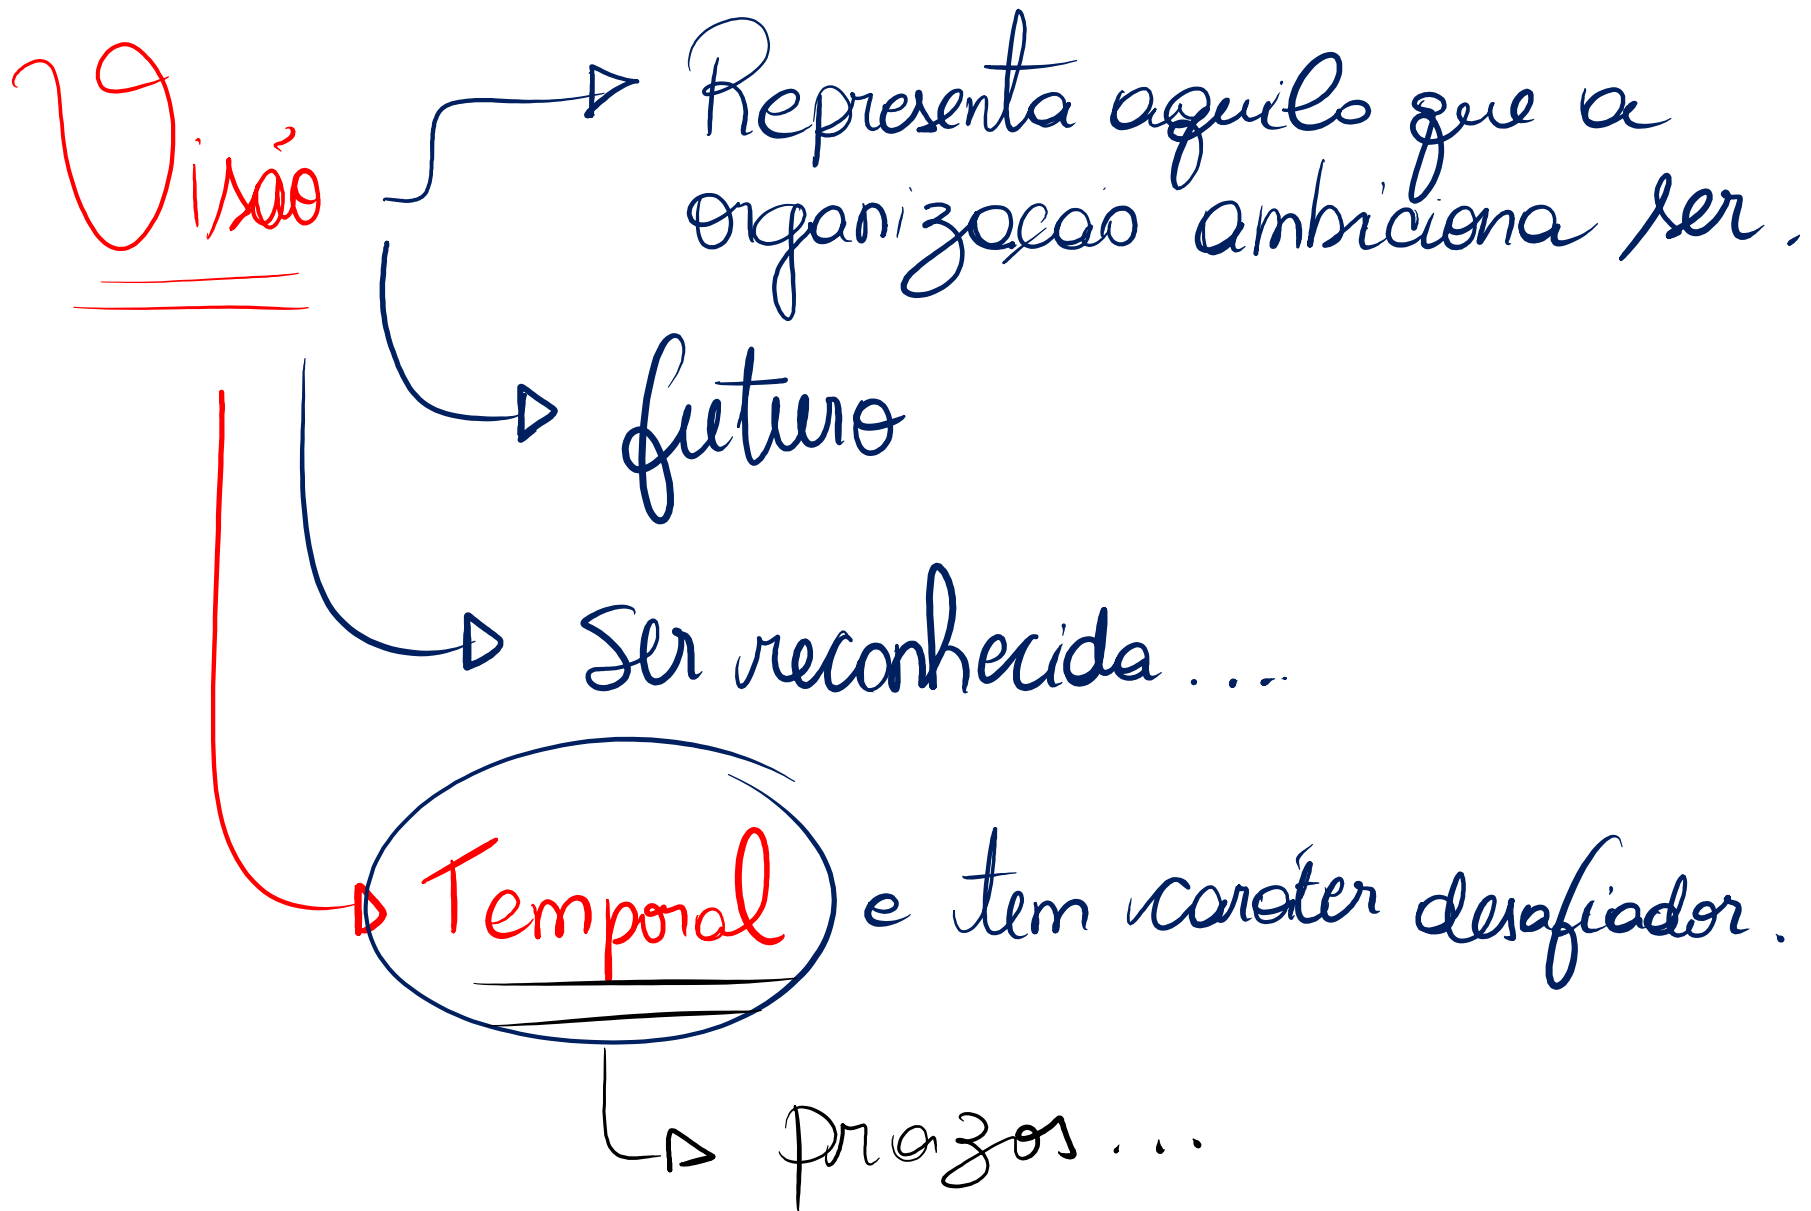 Visão
Representa aquilo que a
organização ambiciona ser.
futuro
Ser reconhecida....
Temporal e tem caráter desafiador.
prazos...